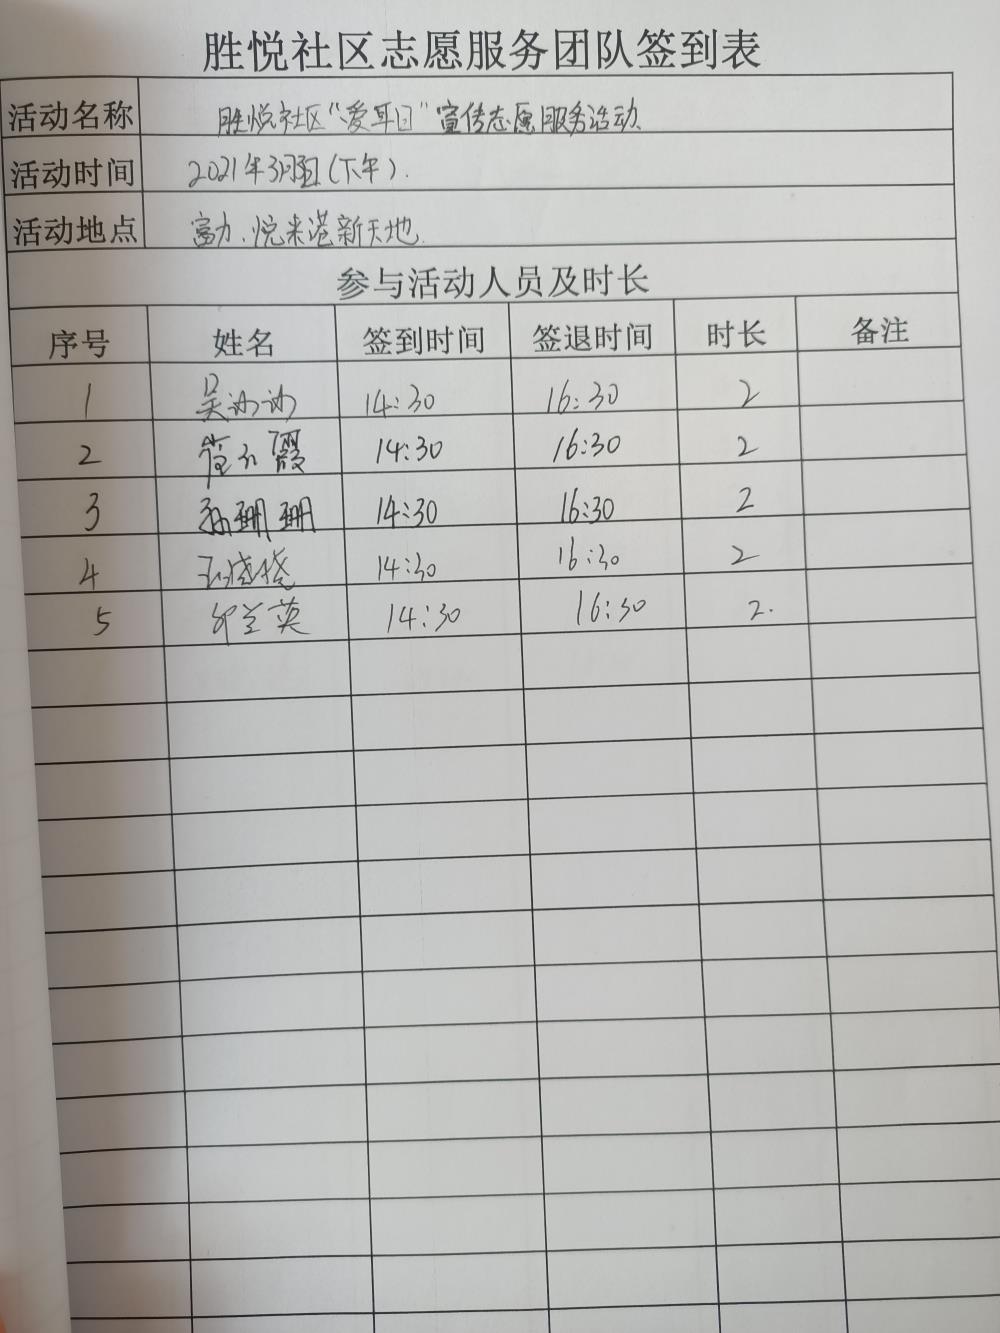 胜悦社区志愿服务团队签到表
活动名称 胜悦社区“爱耳日”宣传志愿服务活动
活动时间 2021年3月 日(下午).
活动地点 富力、悦来港新天地.
参与活动人员及时长
序号 姓名 签到时间 签退时间 时长 备注
1 吴 14:30 16:30 2
2 霞 14:30 16:30 2
3 孙珊珊 14:30 16:30 2
4 14:30 16:30 2
5 兰英 14:30 16:30 2.